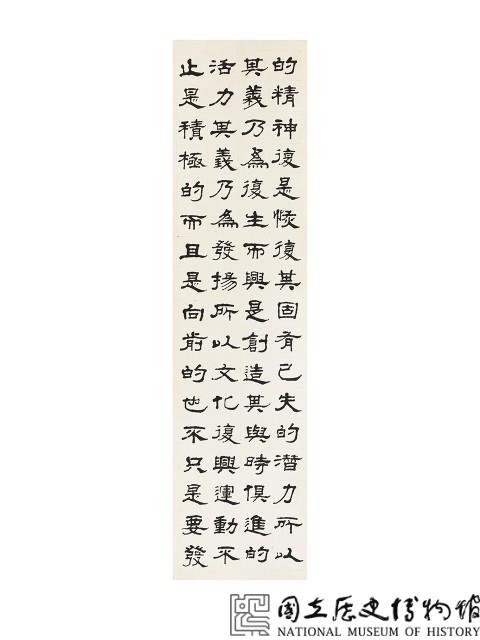 的精神復是恢復其固有已失的潛力所以
其義乃為復生而興是創造其與時俱進的
活力其義乃為發揚所以文化復興運動不
止是積極的而且是向前的也不只是要發
國立歷史博物館
NATIONAL MUSEUM OF HISTORY